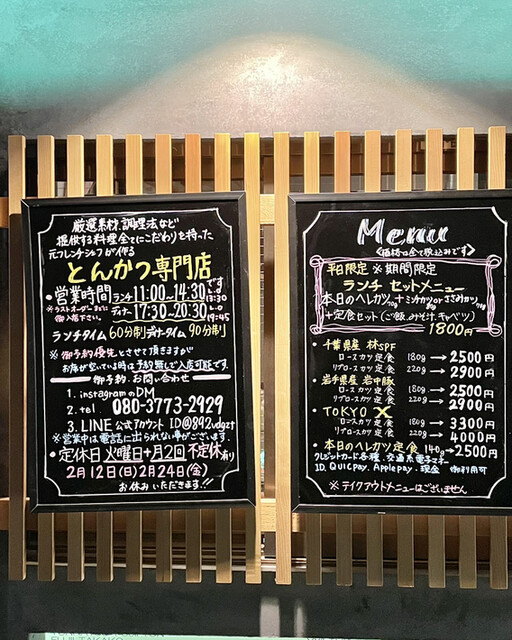 厳選素材、調理法など
提供する料理全てにこだわりを持った
元フレンチシェフが作る
とんかつ専門店
・営業時間 ランチ11:00~14:30です 13:30
※ラストオーダーまでに御入店下さい。 ディナー17:30~20:30 19:45
ランチタイム60分制 ディナータイム90分制
※御予約優先とさせて頂きますが
お席が空いている時は予約無しで入店可能です。
御予約、お問い合わせ
1. instagramのDM
2. tel 080-3773-2929
3. LINE 公式アカウント ID@892vdgzt
※営業中は電話に出られない事がございます。
・定休日 火曜日+月2回不定休有り
2月12日(日)2月24日(金)
お休みいただきます!!
Menu
<価格は全て税込みです>
平日限定 ※期間限定
ランチ セットメニュー
本日のヘレカツ+ミンチカツorささみカツ
+定食セット(ご飯、みそ汁、キャベツ)
1800円
・千葉県産 林SPF
ロースカツ定食 180g→2500円
リブロースカツ定食 220g→2900円
・岩手県産 岩中豚
ロースカツ定食 180g→2500円
リブロースカツ定食 220g→2900円
・TOKYO X
ロースカツ定食 180g→3300円
リブロースカツ定食 220g→4000円
・本日のヘレカツ定食 140g→2500円
クレジットカード各種、交通系電子マネー
ID、QUICpay、Applepay、現金 御利用可
※テイクアウトメニューはございません